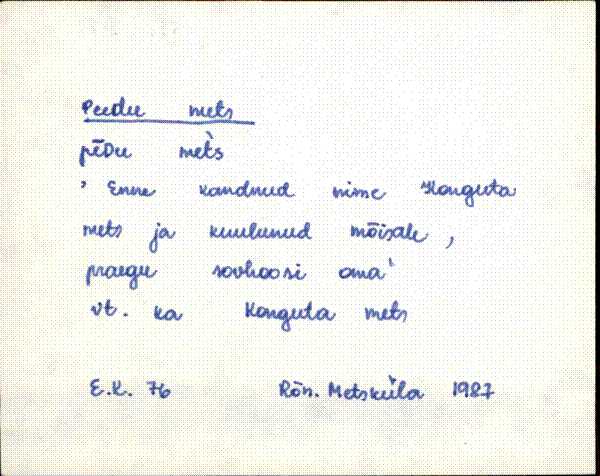 Peedu mets
pēDu mèts
' Enne kandnud nime Konguta
mets ja kuulunud mõisale,
praegu sovhoosi oma'
vt. ka Konguta mets
E.K. 76 Rõn. Metsküla 1987